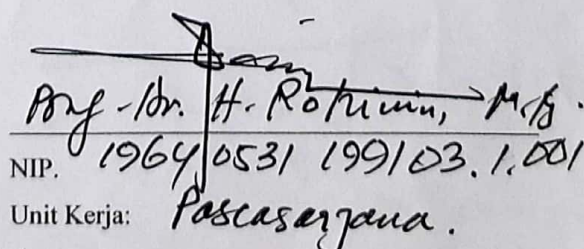 Prof. Dr. H. Rohimin, M.Ag.
NIP. 19640531 199103.1.001
Unit Kerja: Pascasarjana.